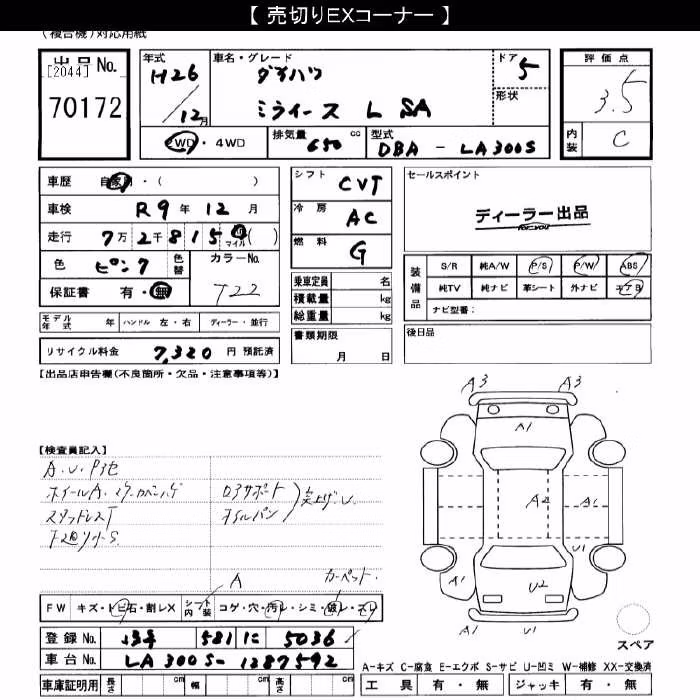 【 売切りEXコーナー 】
(複合機)対応用紙
出品No.
[2044]
70172
年式
H26
/12月
車名・グレード
ダイハツ
ミライース L SA
ドア
5
形状
評価点
3.5
内装
C
2WD・4WD
排気量
650 cc
型式
DBA - LA300S
車歴 自家用・( )
車検 R9年12月
走行 7万2千815
マイル ( )
色 ピンク
色替
カラーNo.
T22
保証書 有・無
シフト CVT
冷房 AC
燃料 G
乗車定員 名
積載量 kg
総重量 kg
セールスポイント
ディーラー出品
for you
装備品
S/R 純A/W P/S P/W ABS
純TV 純ナビ 革シート 外ナビ エアB
ナビ型番:
モデル年式 年 ハンドル 左・右 ディーラー・並行
リサイクル料金 7,320 円 預託済
書類期限
月 日
後日品
【出品店申告欄(不良箇所・欠品・注意事項等)】
A3 A3
A1
【検査員記入】
A.U.P他
ホイールA.
ロアサポート
スタッドレスT
オイルパン
突上げU.
下廻りサS.
A2
A1
U1
A
カーペット.
A1
U2
A1
FW キズ・トビ石・割レX
シート内装 コゲ・穴・汚レ・シミ・破レ・スレ
A1 U1
登録No. 581 に 5036
スペア
車台No. LA300S-1287592
A-キズ C-腐食 E-エクボ S-サビ U-凹ミ W-補修 XX-交換済
車庫証明用 長さ cm 幅 cm 高さ cm
工具 有・無 ジャッキ 有・無